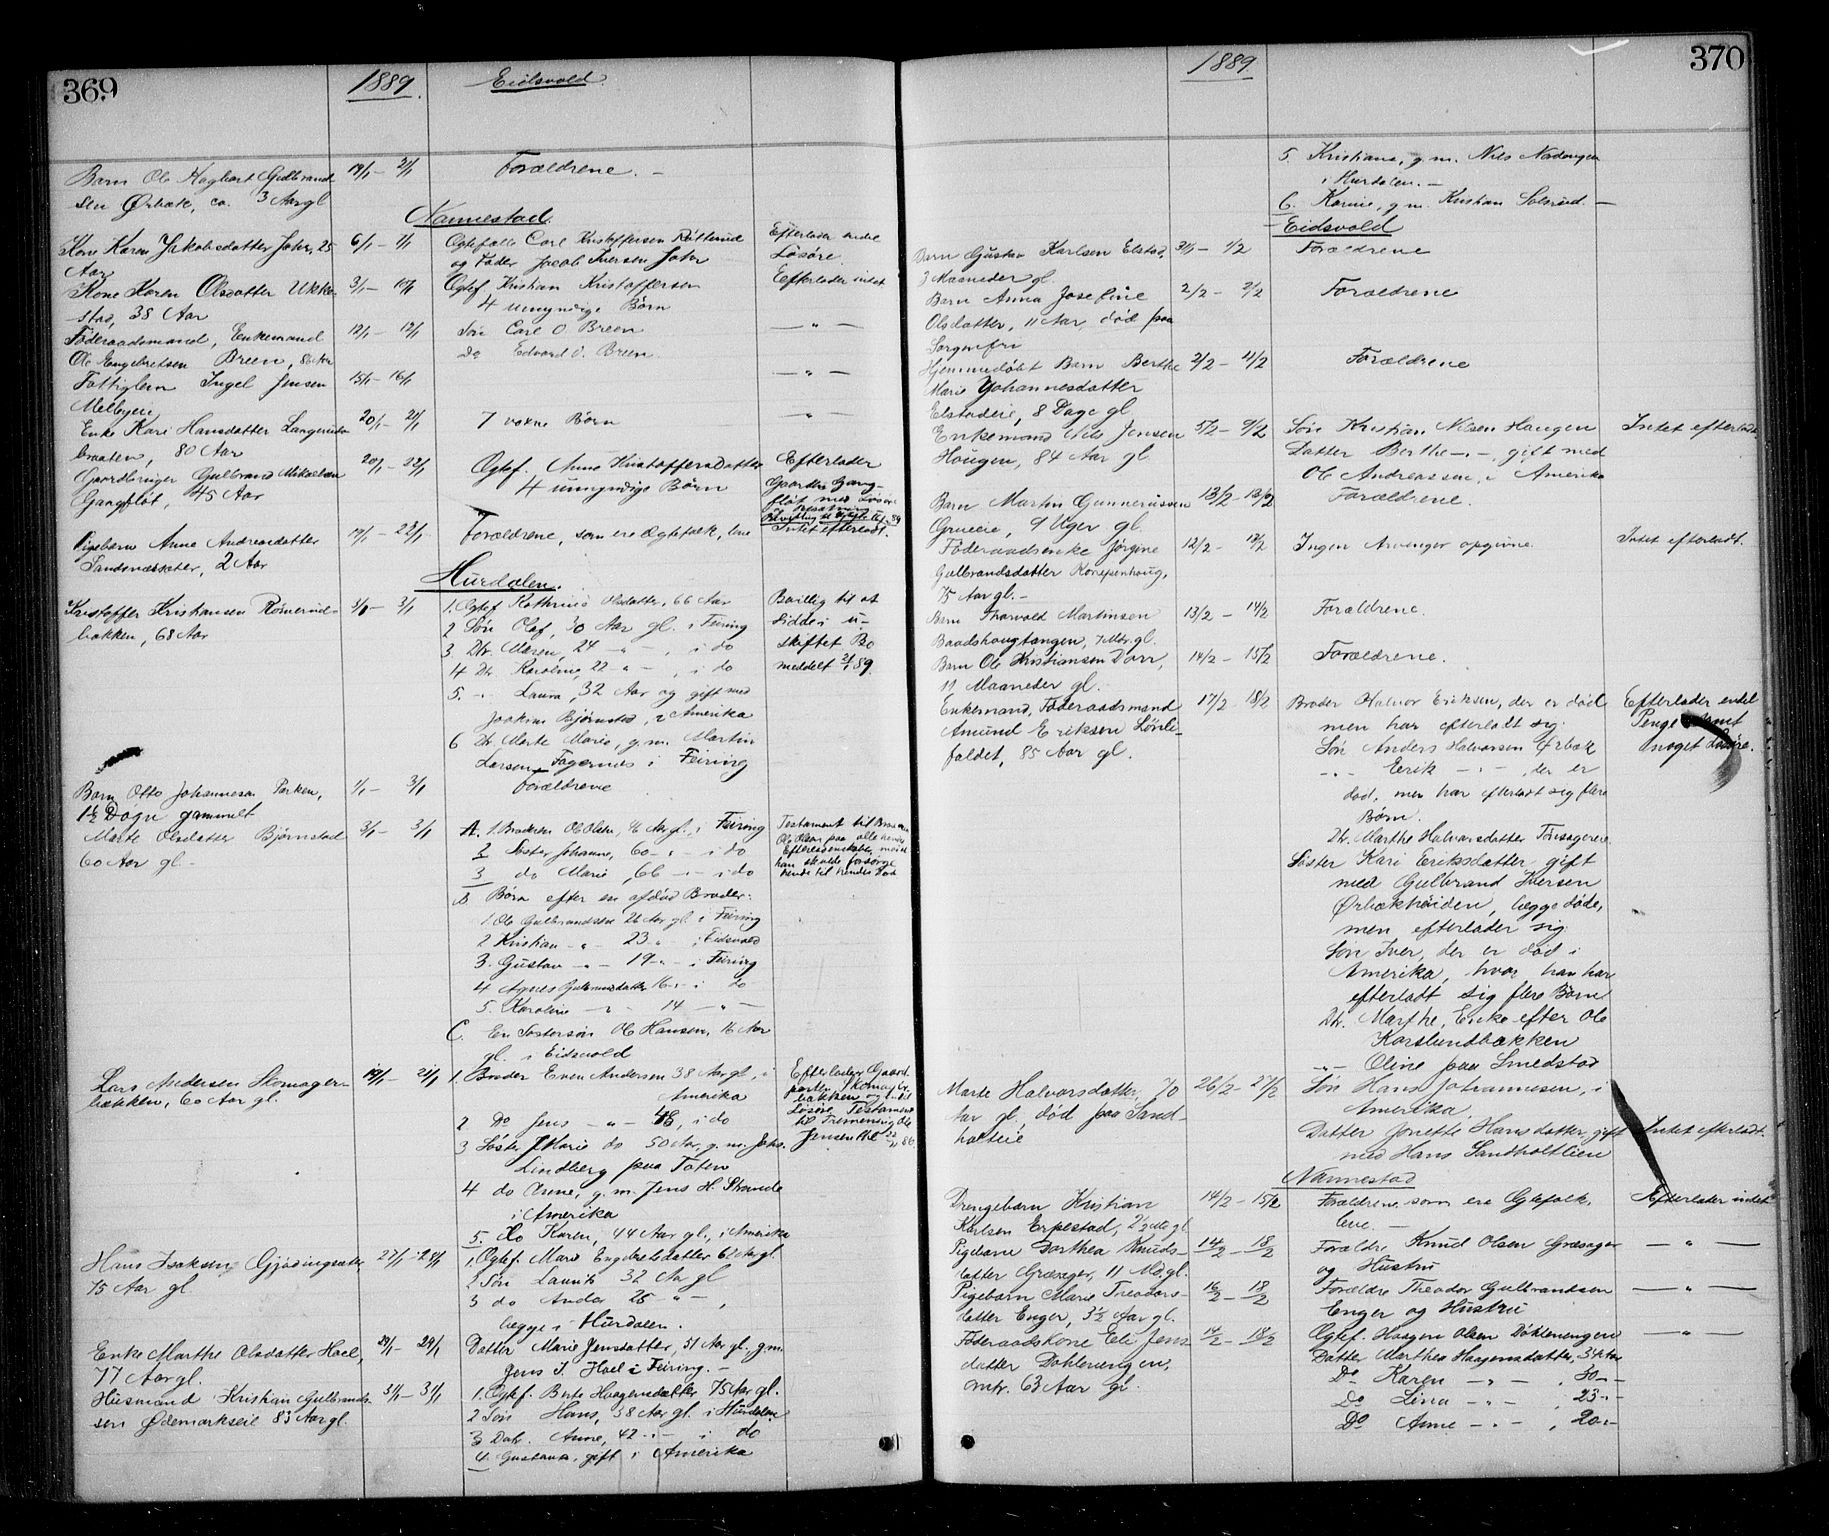 369
1889.
Eidsvold.
Barn Ole Hagbart Gulbrand- 19/1 — 21/1 Forældrene. —
sen Ørbæk, ca. 3 Aar gl
Nannestad.
Kone Karen Jakobsdatter Jahr, 25 6/1 — 7/1 Egtefælle Carl Kristoffersen Efterlader endel
Aar og Fader Jacob Iversen Jahr Løsøre.
Kone Karen Olsdatter Ukke- 3/1 — 10/1 Egtef. Kristian Kristoffersen Efterlader intet
stad, 38 Aar 4 umyndige Børn
Føderaadsmand, Enkemand 12/1 — 12/1 Søn Carl O Breen — " —
Ole Engebretsen Breen, Do Edvard O. Breen
Fattiglem Ingel Jensen 15/1 — 16/1 — " —
Melbyeie
Enke Kari Hansdatter 20/1 — 21/1 7 voxne Børn — " —
braaten, 80 Aar
Gaardbruger Gulbrand Mikaelsen 20/1 — 22/1 Egtef. Anne Kristoffersdatter Efterlader
Gangfløt, 45 Aar 4 umyndige Børn Gaarden Gang-
fløt med Løsøre
Pigebarn Anne Andreasdatter 19/1 — 23/1 Forældrene, som ere Egtefolk, leve Intet efterladt.
Sandsnæsseter, 2 Aar
Hurdalen.
Kristoffer Kristiansen Rømerud- 3/1 — 3/1 1. Egtef Kathrine Olsdatter, 66 Aar Bevillig til at
bakken, 68 Aar 2 Søn Olaf, 30 Aar gl. i Feiring sidde i u-
3 Dtr. Maren, 24 " — , i do skiftet Bo
4 Dtr. Karoline, 22 " — , i do meddelt 2/1 89.
5. " Laura, 32 Aar og gift med
Joakim Bjørnstad, i Amerika
6 Dtr. Marte Marie, g. m. Martin
Larsen Fagernes i Feiring
Barn Otto Johannesen Parken, 1/1 — 3/1 Forældrene
1½ Døgn gammelt
Marte Olsdatter Bjørnstad 3/1 — 3/1 A. 1. Broderen Ole Olsen, 46 Aar gl., i Feiring Testament til Broderen
60 Aar gl — 2 Søster Johanne, 60 — " — i do Ole Olsen paa alle hendes
3 do Marie, 66 — " — i do Efterladenskaber, mod at
han skulde forsørge
hende til hendes Død
B Børn efter en afdød Broder:
1. Ole Gulbrandsen 26 Aar gl. i Feiring
2 Kristian — " — 23 " — i Eidsvold
3. Gustav — " — 19 " — i Feiring
4 Agnes Gulbrandsdatter 16 " — i do
5. Karoline — " — 14 — " —
C. En Søstersøn Ole Hansen, 16 Aar
gl. i Eidsvold
Lars Andersen Skomager- 19/1 — 21/1 1. Broder Even Andersen 38 Aar gl., i Efterlader Gaard-
bakken, 60 Aar gl. Amerika parten Skomager-
2 Do Jens — " — 48, i do bakken og endel
3 Søster Marie do 50 Aar, g. m. Johs. Løsøre Testament
Lindberg paa Toten til Fremmenig Ole
4 do Anne, g. m. Jens H. Strande Jensen
i Amerika
5. Do Karen, 44 Aar gl., i Amerika
Hans Isaksen Gjødingseter, 27/1 — 28/1 1. Egtef. Mari Engebretsdatter 62 Aar gl.
75 Aar gl 2 Søn Lauritz 32 Aar gl
3 do Andor 25 — " —,
begge i Hurdalen.
Enke Marthe Olsdatter Hoel, 29/1 — 29/1 Datter Marie Jensdatter, 51 Aar gl. g.m.
77 Aar gl. Jens J. Hoel i Feiring. —
Husmand Kristian Gulbrand- 31/1 — 31/1 1. Egtef. Berte Haagensdatter 75 Aar gl.
sen Ødemarkseie 83 Aar gl. 2 Søn Hans, 38 Aar gl. i Hurdalen
3 Datr. Anne, 42 " — i do
4. Gustava, gift i Amerika
370
1889
5. Kristiana, g. m. Nils Nordengen
i Hurdalen. —
6. Karine, g. m. Kristian Solsrud. —
Eidsvold
Barn Gustav Karlsen Elstad, 31/1 — 1/2 Forældrene
3 Maaneder gl.
Barn Anna Josefine 2/2 — 2/2 Forældrene
Olsdatter, 11 Aar, død paa
Sorgenfri
Hjemmedøbt Barn Berthe 2/2 — 4/2 Forældrene
Marie Johannesdatter
Elstadeie, 8 Dage gl
Enkemand Nils Jensen 5/2 — 9/2 Søn Kristian Nilsen Haugen Intet efterladt
Haugen, 84 Aar gl. Datter Berthe — " —, gift med
Ole Andreassen, i Amerika
Barn Martin Gunnerussen 13/2 — 13/2 Forældrene.
Grueeie, 9 Uger gl.
Føderaadsenke Jørgine 12/2 — 13/2 Ingen Arvinger opgivne. Intet efterladt.
Gulbrandsdatter
75 Aar gl. —
Barn Thorvald Martinsen 13/2 — 14/2 Forældrene.
Baadshaugtangen, 7 Mdr. gl.
Barn Ole Kristiansen Dorr, 14/2 — 15/2 Forældrene.
11 Maaneder gl.
Enkemand, Føderaadsmand 17/2 — 18/2 Broder Halvor Eriksen, der er død Efterlader endel
Amund Eriksen Lønli- men har efterladt sig: Penge samt
faldet, 85 Aar gl. Søn Anders Halvorsen Ørbæk noget Løsøre.
— " — Eerik — " —, der er
død, men har efterladt sig flere
Børn.
Dtr. Marthe Halvorsdatter
Søster Kari Eriksdatter gift
med Gulbrand Iversen
Ørbækheiden, begge døde,
men efterlader sig
Søn Iver, der er død i
Amerika, hvor han har
efterladt sig flere Børn
Dtr. Marthe, Enke efter Ole
Karslundbakken
— " — Oline paa Smedstad
Marte Halvorsdatter, 70 26/2 — 27/2 Søn Hans Johannesen, i
Aar gl, død paa Sand- Amerika.
holteie Datter Jonette Hansdatter, gift Intet efterladt.
med Hans Sandholtlien
Nannestad
Drengebarn Kristian 14/2 — 15/2 Forældrene som ere Egtefolk, Efterlader intet
Karlsen Erpestad, 2½ Mdr. gl. leve. —
Pigebarn Dorthea Knuds- 14/2 — 18/2 Forældre Knud Olsen Græsager — " —
datter Græsager, 11 Md. gl. og Hustru
Pigebarn Marie Theodors- 16/2 — 18/2 Forældre Theodor Gulbrandsen — " —
datter Enger, 3½ Aar gl. Enger og Hustru
Føderaadskone Eli Jens- 14/2 — 18/2 Egtef. Haagen Olsen Døhlenengen — " —
datter Døhlenengen, Datter Marthea Haagensdatter,
mtr. 63 Aar gl. Do Karen — " — , 30 —
Do Lina — " — , 23 —
Do Anne — " — , 20 —